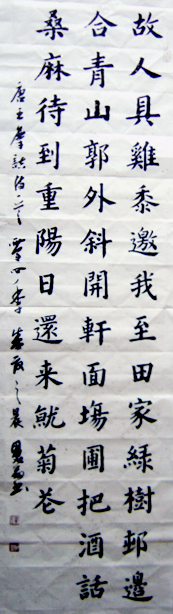 故人具雞黍邀我至田家綠樹邨邊
合青山郭外斜開軒面塲圃把酒話
桑麻待到重陽日還来就菊花
唐王摩詰詩